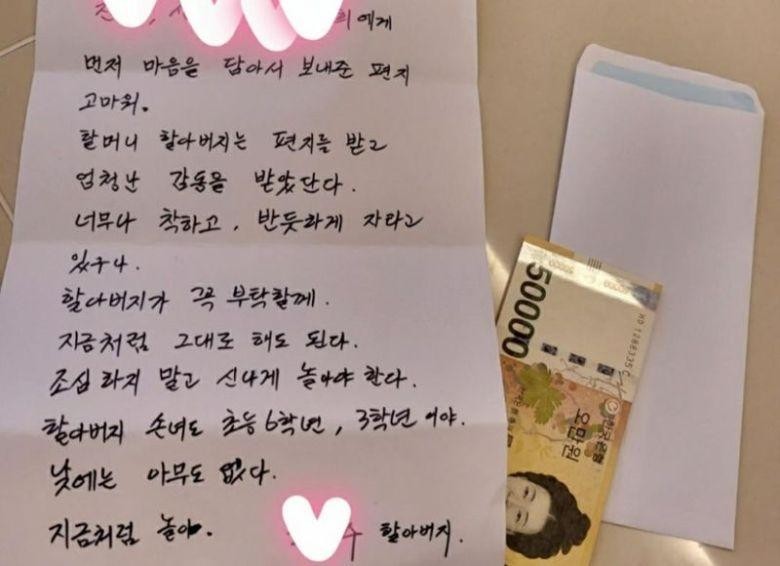 희에게
먼저 마음을 담아서 보내준 편지
고마워.
할머니 할아버지는 편지를 받고
엄청난 감동을 받았단다.
너무나 착하고, 반듯하게 자라고
있구나.
할아버지가 꼭 부탁할께.
지금처럼 그대로 해도 된다.
조심 하지 말고 신나게 놀아야 한다.
할아버지 손녀도 초등6학년, 3학년 이야.
낮에는 아무도 없다.
지금처럼 놀아.
수 할아버지.
50000
50000
오만원
한국은행